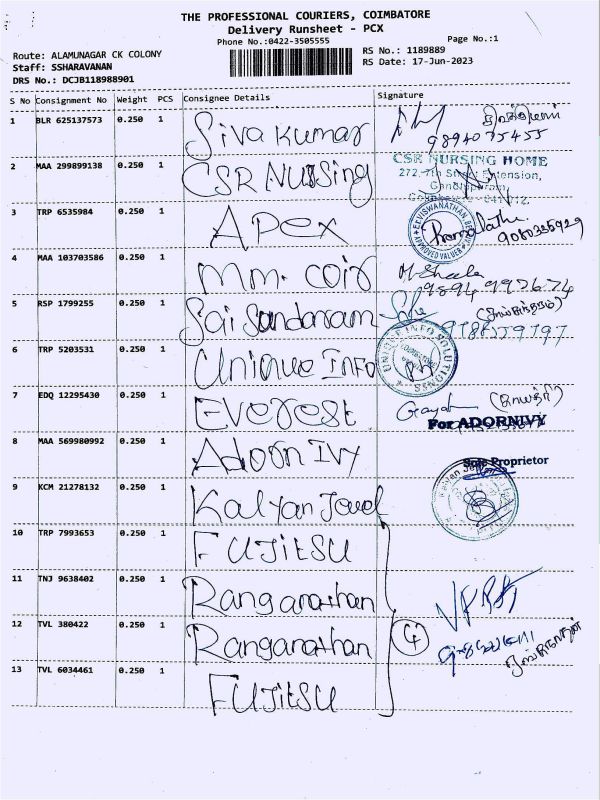 THE PROFESSIONAL COURIERS, COIMBATORE
Delivery Runsheet - PCX
Phone No.:0422-3505555
Page No.:1
Route: ALAMUNAGAR CK COLONY
RS No.: 1189889
Staff: SSHARAVANAN
RS Date: 17-Jun-2023
DRS No.: DCJB118988901
S No Consignment No Weight PCS Consignee Details Signature
1 BLR 625137573 0.250 1 Siva Kumar
9894075455
2 MAA 299899138 0.250 1 CSR Nursing
CSR NURSING HOME
272, 7th Street Extension,
3 TRP 6535984 0.250 1 Apex
APPROVED VALUER
9080335929
4 MAA 103703586 0.250 1 mm. coir
M. Sheela
9894 992674
5 RSP 1799255 0.250 1 Sai Sundaram
6 TRP 5203531 0.250 1 Unique Info
UNIQUE INFO SOLUTIONS
7 EDQ 12295430 0.250 1 Everest
(காயத்ரி)
For ADORNIVY
8 MAA 569980992 0.250 1 Adorn Ivy
Sole Proprietor
9 KCM 21278132 0.250 1 Kalyan Jewel
10 TRP 7993653 0.250 1 Fujitsu
11 TNJ 9638402 0.250 1 Ranganathan
12 TVL 380422 0.250 1 Ranganathan
4
13 TVL 6034461 0.250 1 Fujitsu